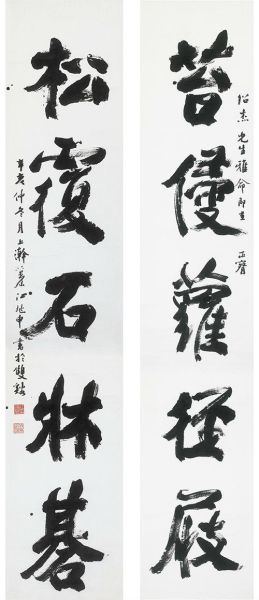 苔侵蘿徑屐
紹杰先生雅命即在
正腕
松覆石牀碁
辛亥仲冬月上澣養江兆申書於雙谿